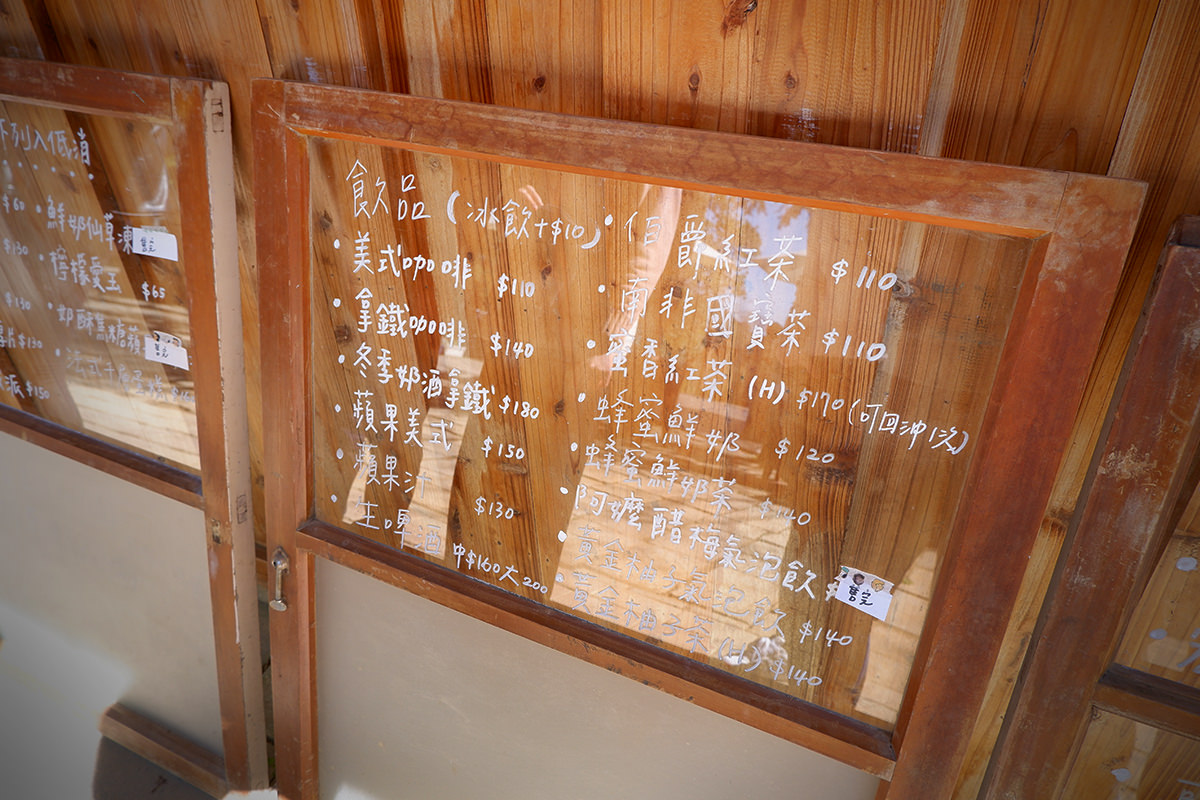 下列入低消
$60 •鮮奶仙草凍 售完
$130 •檸檬愛玉 $65
$130 •奶酥焦糖蘋 售完
片$130 •法式千層蛋糕
派$150
飲品(冰飲+$10)
•美式咖啡 $110
•拿鐵咖啡 $140
•冬季奶酒拿鐵 $180
•蘋果美式 $150
•蘋果汁 $130
•生啤酒 中$160大200
•伯爵紅茶 $110
•南非國寶茶 $110
•蜜香紅茶 (H) $170 (可回沖1次)
•蜂蜜鮮奶 $120
•蜂蜜鮮奶茶 $140
•阿嬤醋梅氣泡飲 $ 售完
•黃金柚子氣泡飲 $140
•黃金柚子茶 (H) $140